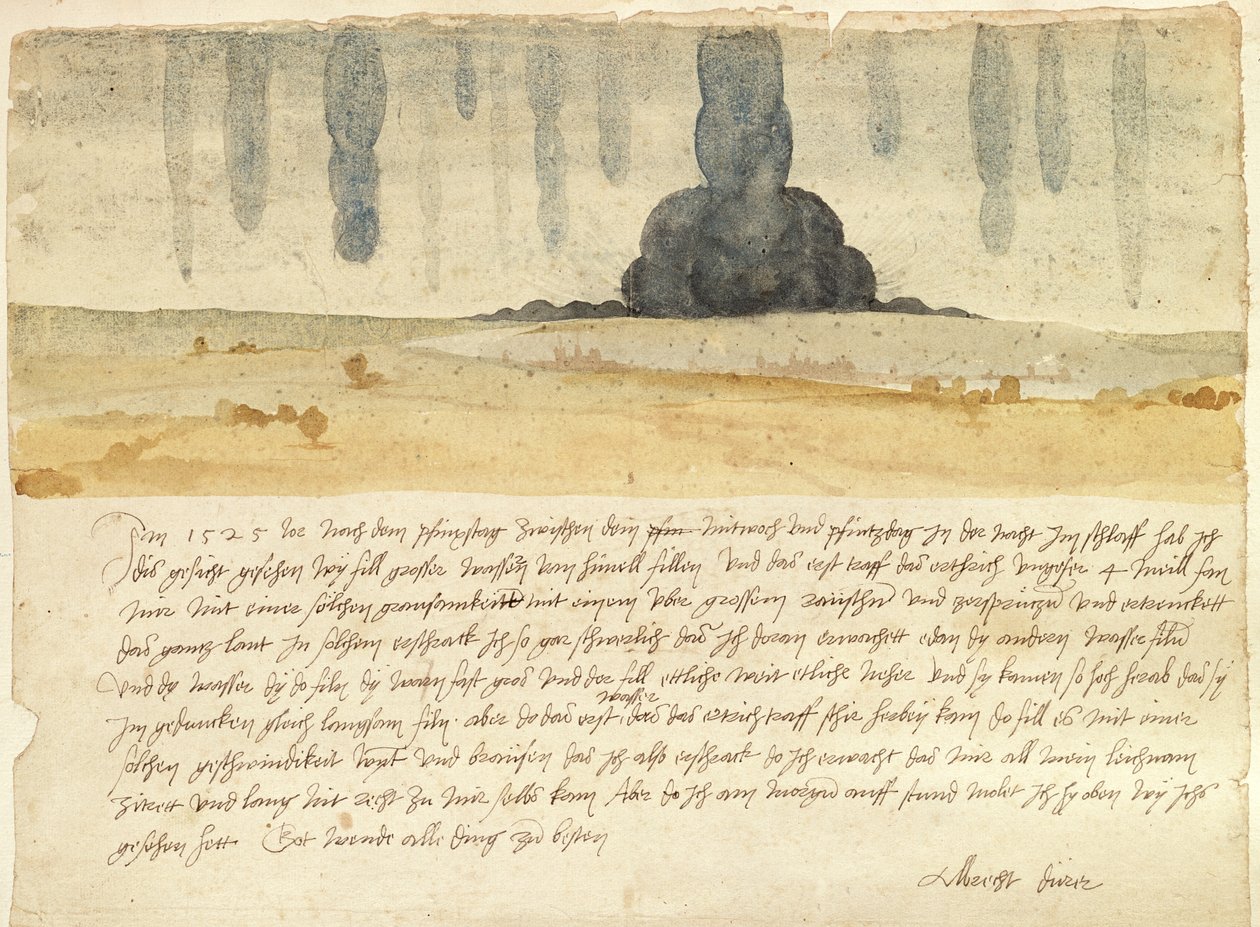 Im 1525 Jor noch dem pfinxstag zwischen dem pfin Mitwoch und pfintzdag in der nacht im schlaff hab ich
dis gesicht gesehen wy fill grosser wassern van himell fillen Und das erst traff das erthrich ungefer 4 meill fan
mir mit einer solchen grausamkeitt mit einem uber grossem raüschn und zersprützn und ertrenckett
das gantz lant In solchem erschrack ich so gar schwerlich das ich doran erwachett edan dy andern wasser filn
Und dy wasser dy do filn dy warn fast gros und der fill ettliche weit etliche neher und sy kamen so hoch herab das sy
im gedancken gleich langsam filn. aber do das erst wasser das das ertrich traff schir herbey kam do fill es mit einer
solchen geschwindikeit wynt und braüsen das ich also erschrack do ich erwacht das mir all mein leichnam
zitrett und lang nit recht zu mir selbs kam Aber do ich am morgn auff stund molet ich hy oben wy ichs
gesehen hett. Got wende alle ding zw besten
Albrecht dürer